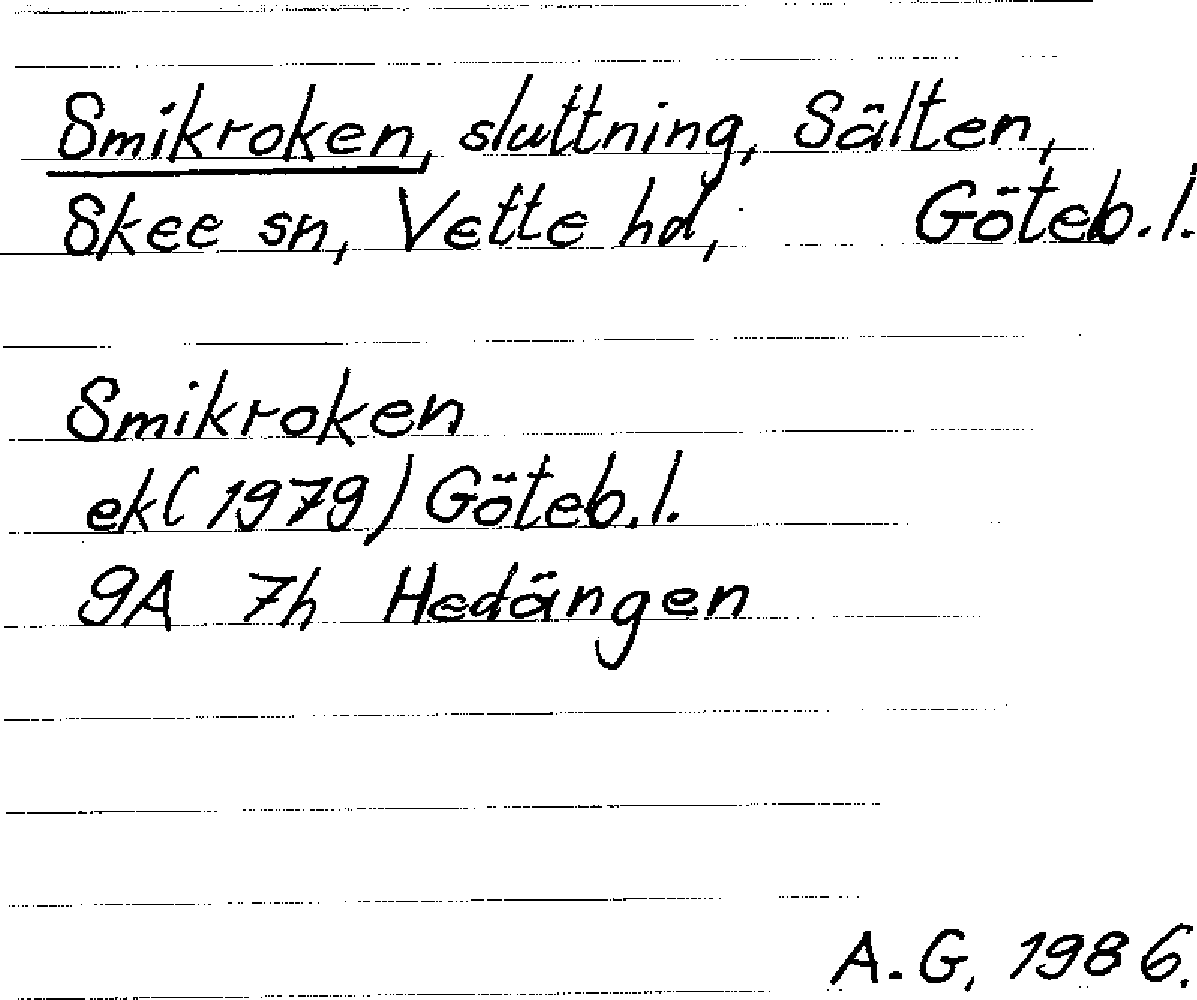 Smikroken, sluttning, Sälten,
Skee sn, Vette hd, Göteb.l.
Smikroken
ek(1979) Göteb.l.
9A 7h Hedängen
A.G, 1986.